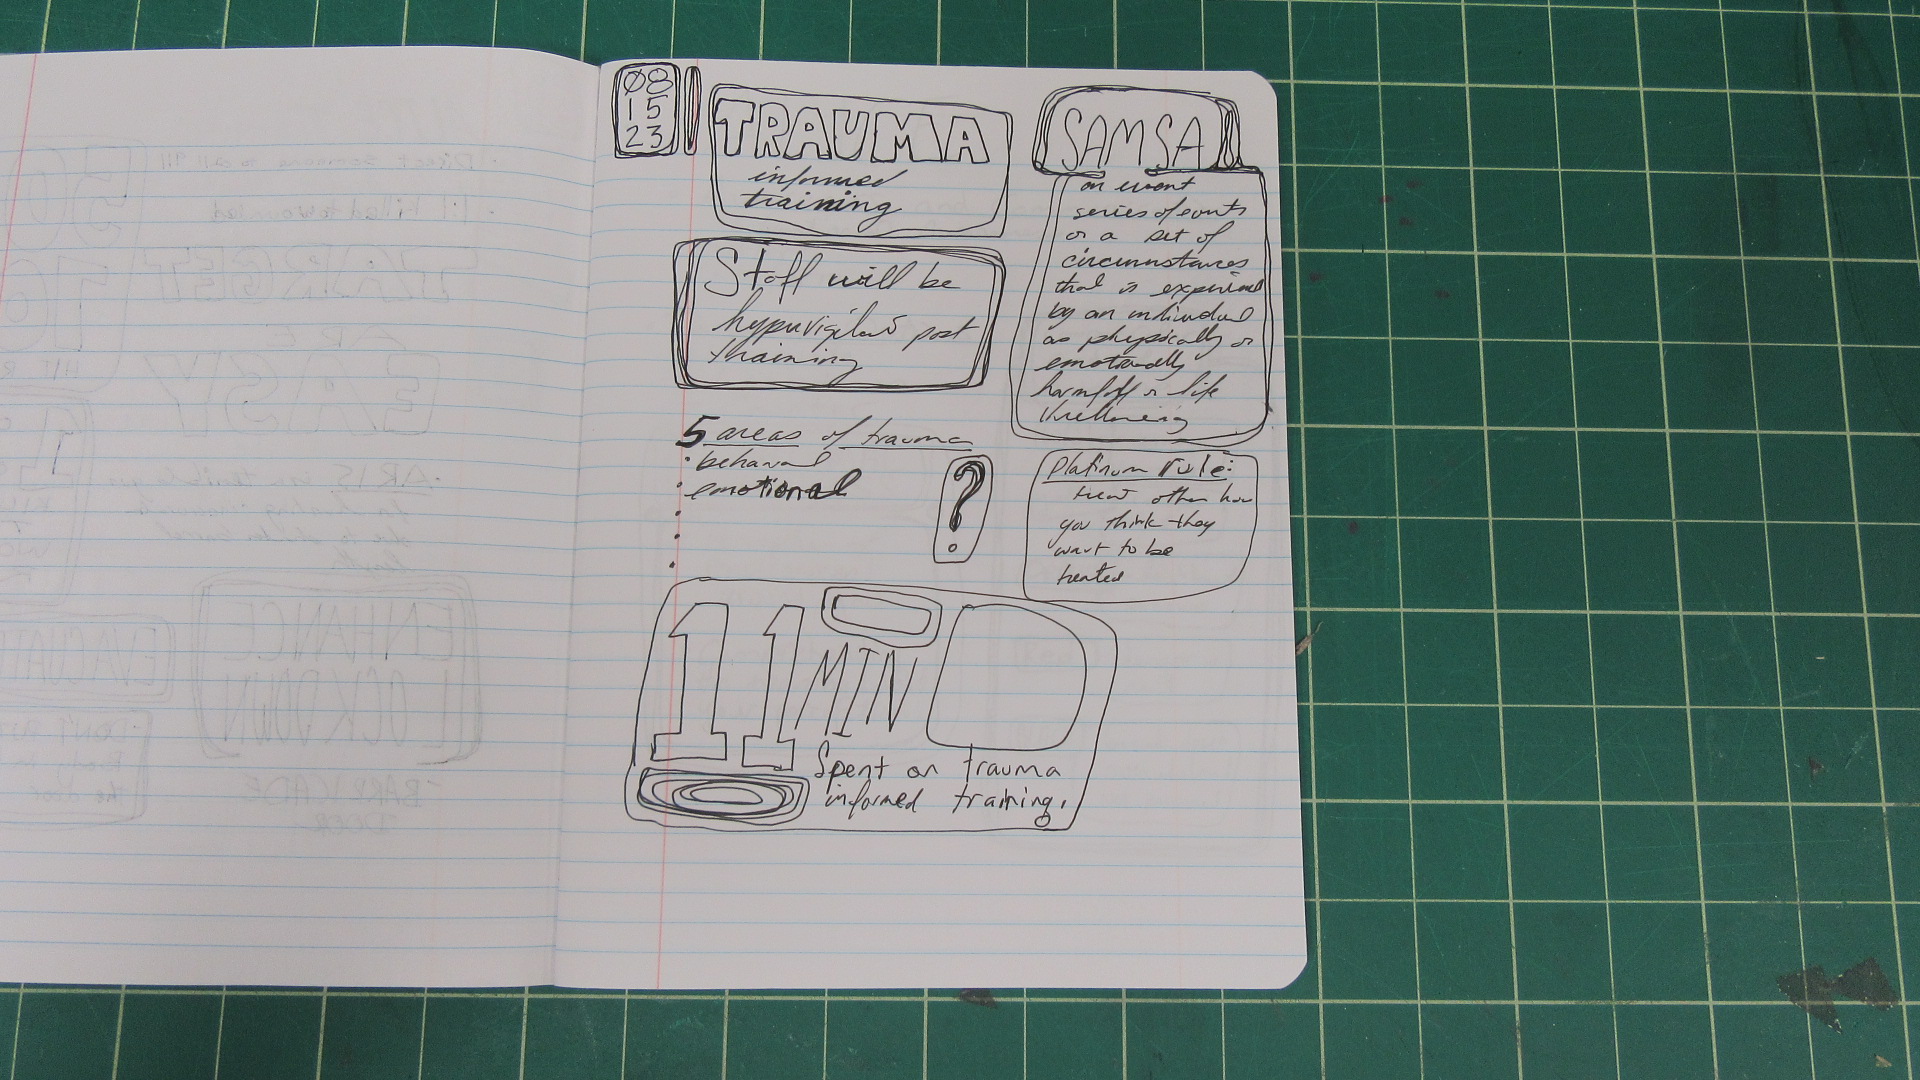 08
15
23
TRAUMA
informed
training
Staff will be
hypervigilant post
training
5 areas of trauma
behavral
emotional
?
SAMSA
an event
series of events
or a set of
circumstances
that is experienced
by an individual
as physically or
emotionally
or life
Platinum rule:
treat other how
you think they
want to be
treated
11 MIN
Spent on trauma
informed training.
ENHANCE
LOCKDOWN
BARRICADE
DOOR